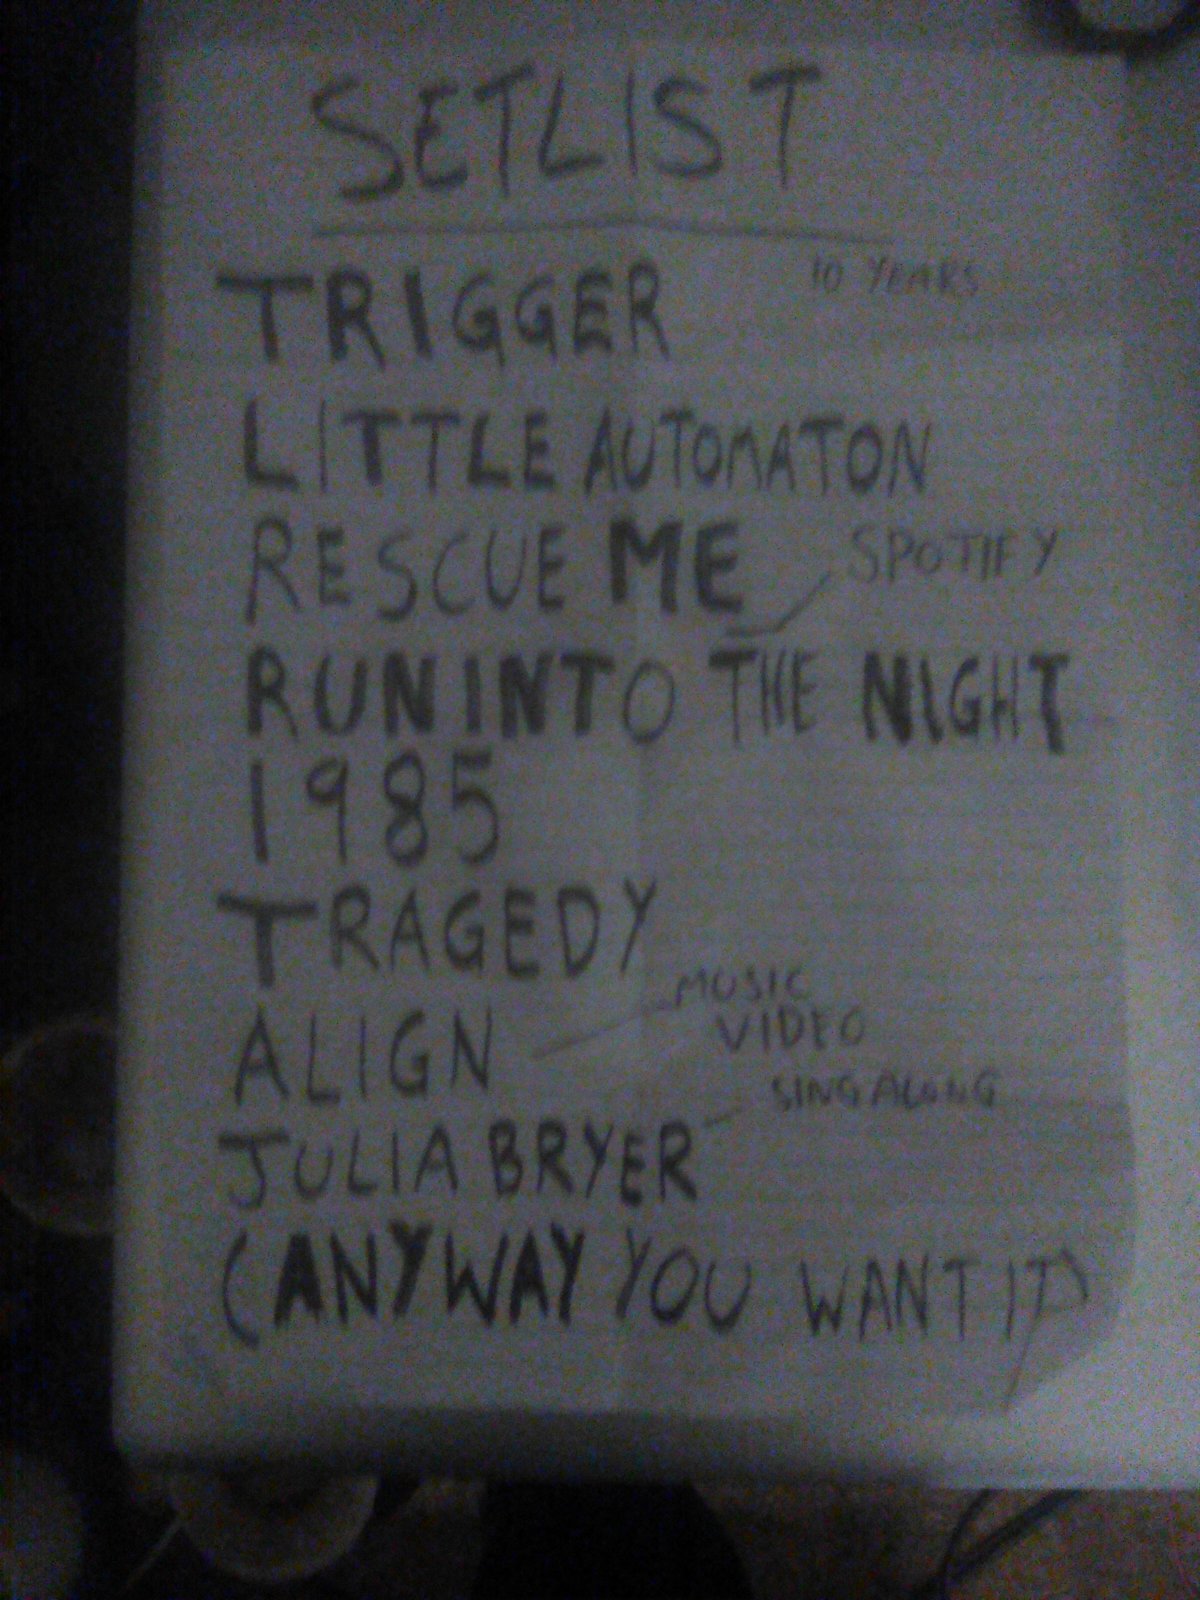 SETLIST
10 YEARS
TRIGGER
LITTLE AUTOMATON
RESCUE ME
SPOTIFY
RUN INTO THE NIGHT
1985
TRAGEDY
MUSIC
VIDEO
ALIGN
SINGALONG
JULIA BRYER
(ANYWAY YOU WANT IT)